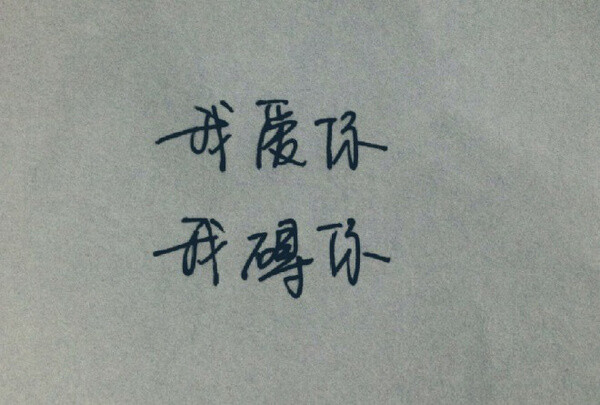 我爱你
我碍你